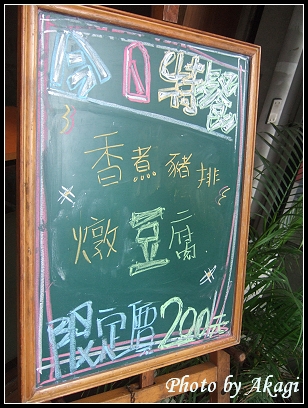 今日特餐
香煮豬排
燉豆腐
限定價200元
Photo by Akagi